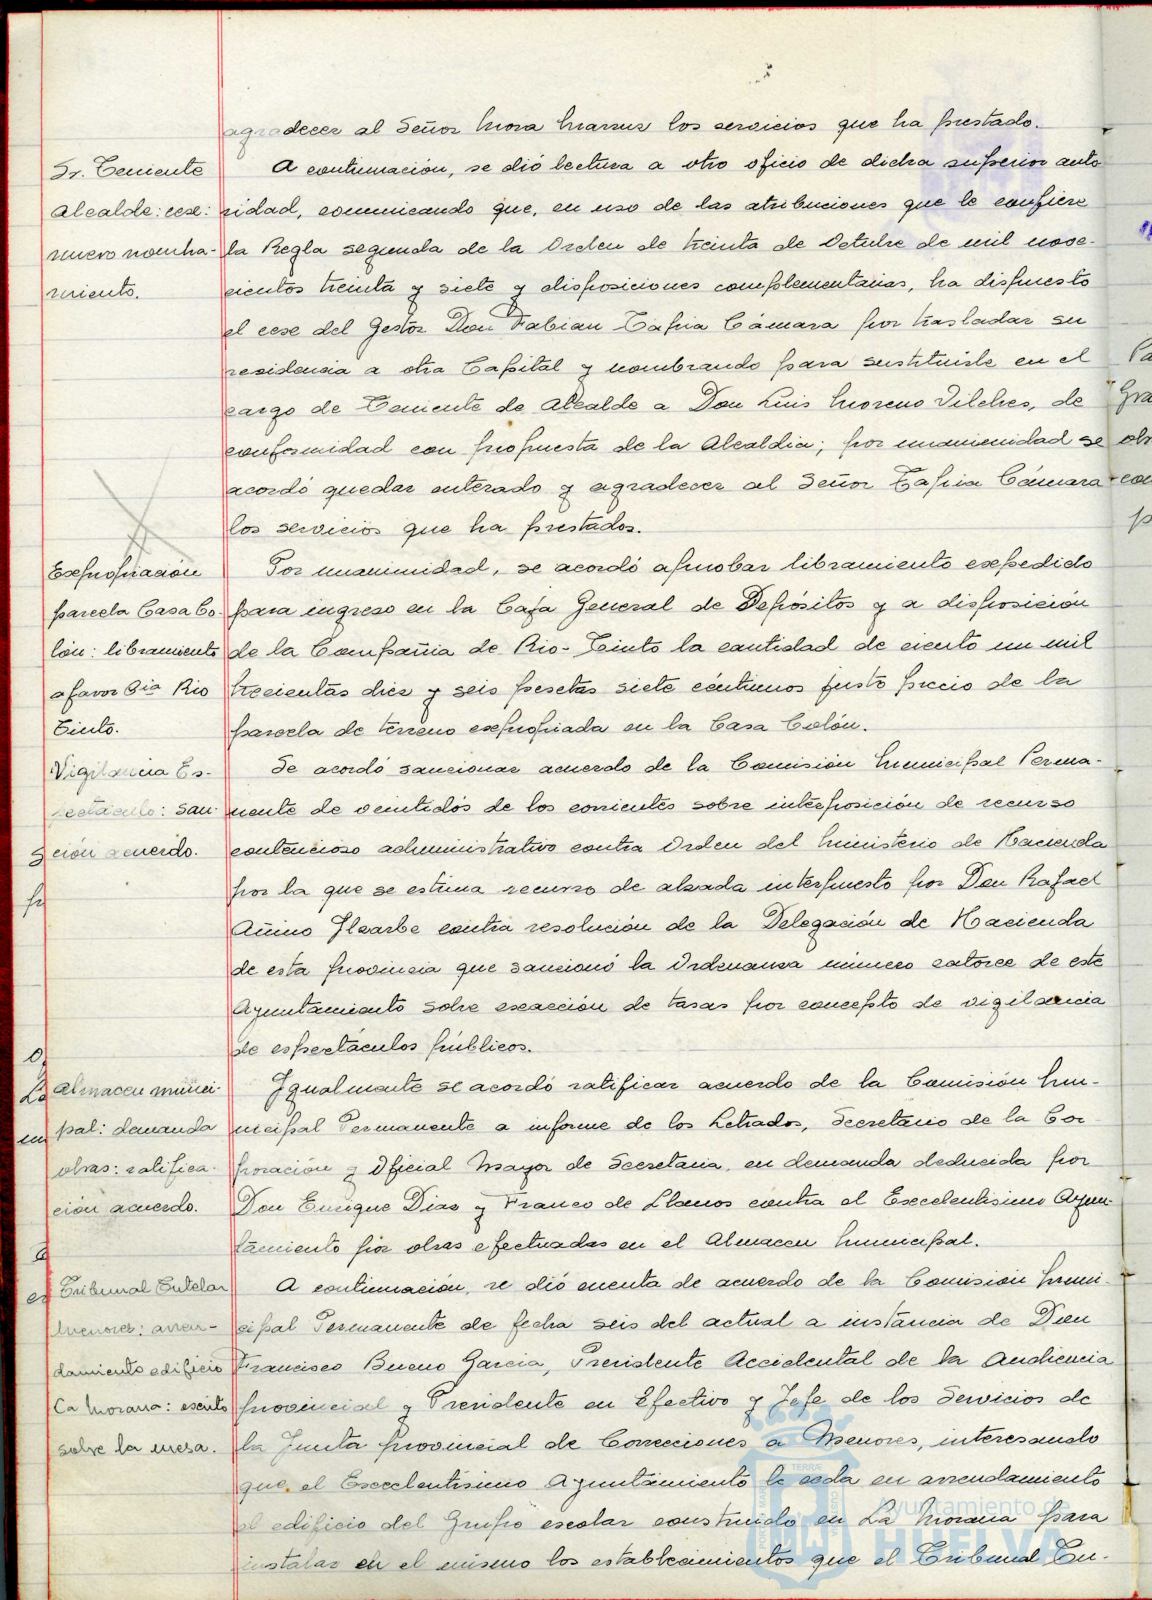 agradecer al Señor Mora Marrus los servicios que ha prestado.
Sr. Teniente
Alcalde: cese:
nuevo nombra-
miento.
A continuación, se dió lectura a otro oficio de dicha superior auto
ridad, comunicando que, en uso de las atribuciones que le confiere
la Regla segunda de la Orden de treinta de Octubre de mil nove-
cientos treinta y siete y disposiciones complementarias, ha dispuesto
el cese del Gestor Don Fabian Tapia Cámara por trasladar su
residencia a otra Capital y nombrando para sustituirle en el
cargo de Teniente de Alcalde a Don Luis Moreno Vilches, de
conformidad con propuesta de la Alcaldia; por unanimidad se
acordó quedar enterado y agradecer al Señor Tapia Cámara
los servicios que ha prestados.
Expropiación
parcela Casa Co-
lón: libramiento
a favor Cia Rio
Tinto.
Por unanimidad, se acordó aprobar libramiento expedido
para ingreso en la Caja General de Depósitos y a disposición
de la Compañia de Rio-Tinto la cantidad de ciento un mil
trecientas diez y seis pesetas siete céntimos justo precio de la
parcela de terreno expropiada en la Casa Colón.
Vigilancia Es-
pectáculo: san-
ción acuerdo.
Se acordó sancionar acuerdo de la Comisión Municipal Perma-
nente de veintidós de los corrientes sobre interposición de recurso
contencioso administrativo contra Orden del Ministerio de Hacienda
por la que se estima recurso de alzada interpuesto por Don Rafael
Añino Ilzarbe contra resolución de la Delegación de Hacienda
de esta provincia que sancionó la Ordenanza número catorce de este
Ayuntamiento sobre exacción de tasas por concepto de vigilancia
de espectáculos públicos.
Almacen munici-
pal: demanda
obras: ratifica-
ción acuerdo.
Igualmente se acordó ratificar acuerdo de la Comisión Mu-
nicipal Permanente a informe de los Letrados, Secretario de la Cor-
poración y Oficial Mayor de Secretaria, en demanda deducida por
Don Enrique Dias y Franco de Llanos contra el Excelentisimo Ayun-
tamiento por obras efectuadas en el Almacen Municipal.
Tribunal Tutelar
Menores: arren-
damiento edificio
La Morana: escrito
sobre la mesa.
A continuación, se dió cuenta de acuerdo de la Comisión Muni-
cipal Permanente de fecha seis del actual a instancia de Don
Francisco Bueno Garcia, Presidente Accidental de la Audiencia
provincial y Presidente en Efectivo y Jefe de los Servicios de
la Junta provincial de Correcciones a Menores, interesando
que el Excelentisimo Ayuntamiento le ceda en arrendamiento
el edificio del Grupo escolar construido en La Morana para
instalar en el mismo los establecimientos que el Tribunal Tu-
Ayuntamiento de
HUELVA